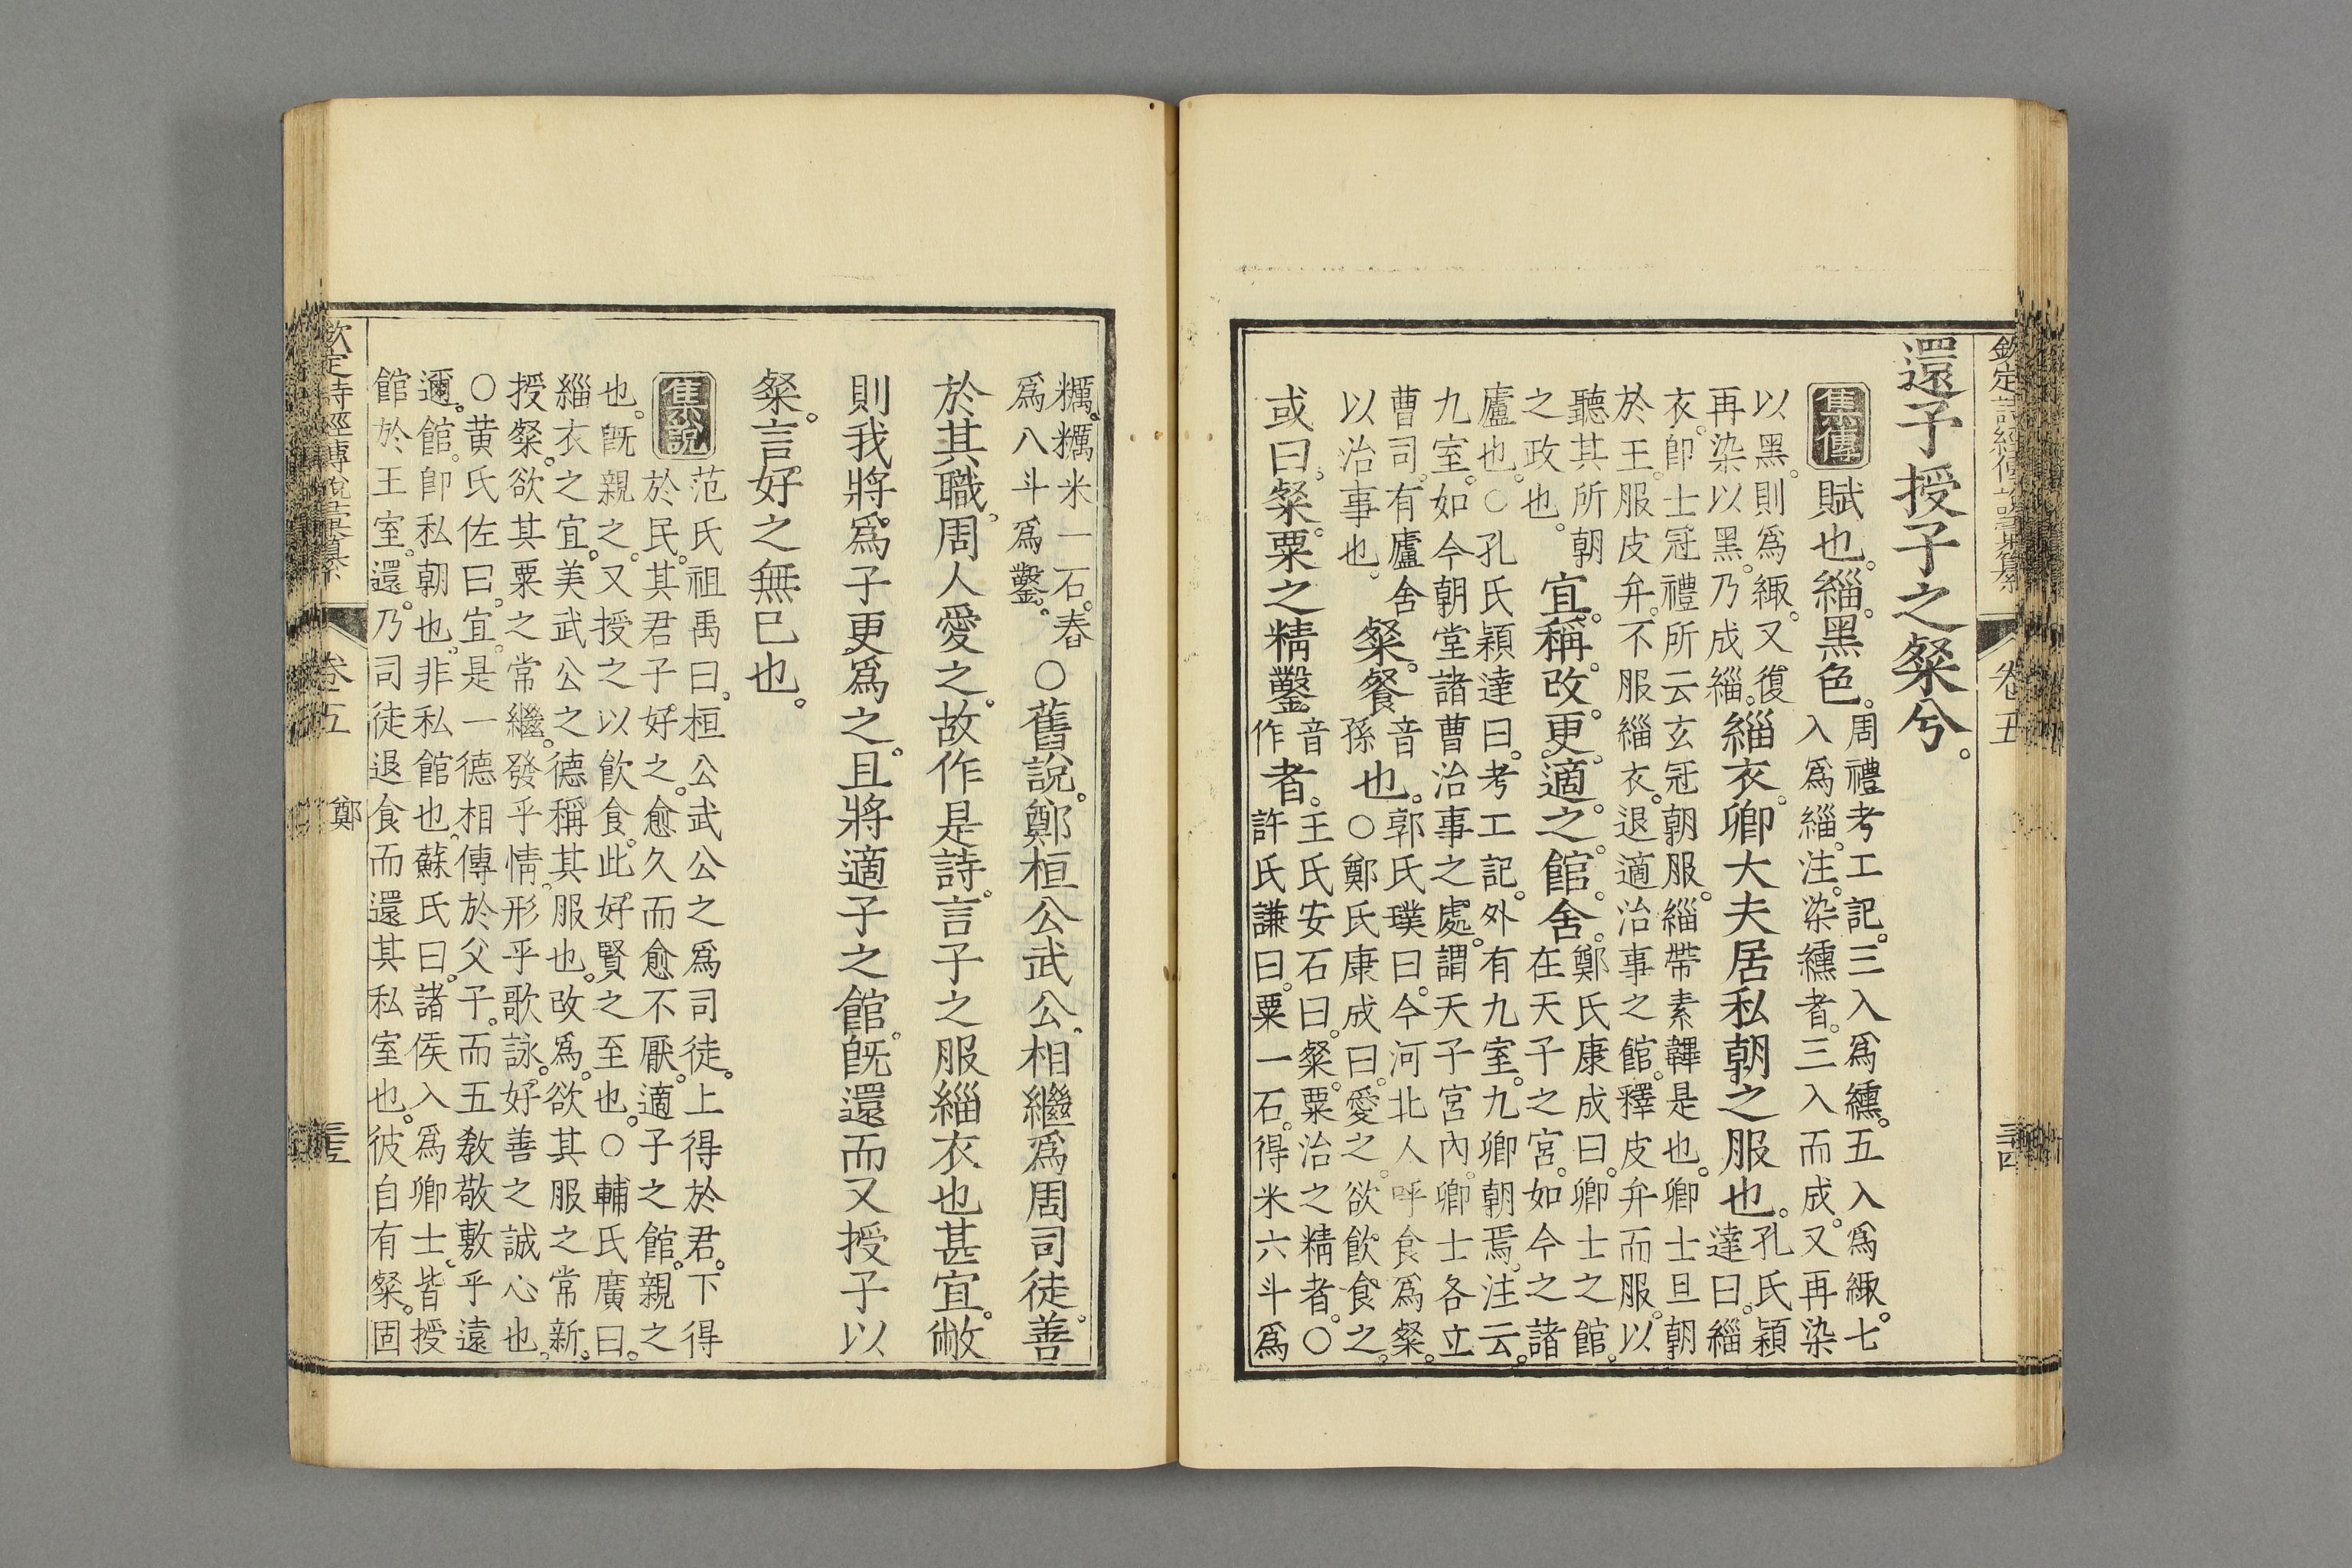 欽定詩經傳說彙纂 卷五 三十四
還子授子之粲兮。
集傳 賦也。緇。黑色。周禮考工記。三入爲纁。五入爲緅。七入爲緇。注。染纁者。三入而成。又再染
以黑。則爲緅。又復再染以黑。乃成緇。緇衣。卿大夫居私朝之服也。孔氏穎達曰。緇
衣。卽士冠禮所云玄冠朝服。緇帶素韠是也。卿士旦朝於王。服皮弁。不服緇衣。退適治事之館。釋皮弁而服。以
聽其所朝之政也。宜。稱。改。更。適。之。館。舍。鄭氏康成曰。卿士之館。在天子之宮。如今之諸
廬也。○孔氏穎達曰。考工記。外有九室。九卿朝焉。注云。九室。如今朝堂諸曹治事之處。謂天子宮內。卿士各立
曹司。有廬舍以治事也。粲。餐音孫也。郭氏璞曰。今河北人呼食爲粲。○鄭氏康成曰。愛之。欲飮食之。
或曰。粲。粟之精鑿音作者。王氏安石曰。粲。粟治之精者。○許氏謙曰。粟一石。得米六斗爲
糲。糲米一石。舂爲八斗爲鑿。○舊說。鄭桓公武公。相繼爲周司徒。善
於其職。周人愛之。故作是詩。言子之服緇衣也甚宜。敝
則我將爲子更爲之。且將適子之館。旣還而又授子以
粲。言好之無已也。
集說 范氏祖禹曰。桓公武公之爲司徒。上得於君。下得於民。其君子好之。愈久而愈不厭。適子之館。親之
也。旣親之。又授之以飮食。此好賢之至也。○輔氏廣曰。緇衣之宜。美武公之德稱其服也。改爲。欲其服之常新。
授粲。欲其粟之常繼。發乎情。形乎歌詠。好善之誠心也。○黃氏佐曰。宜。是一德相傳於父子。而五敎敬敷乎遠
邇。館。卽私朝也。非私館也。蘇氏曰。諸侯入爲卿士。皆授館於王室。還。乃司徒退食而還其私室也。彼自有粲。固
欽定詩經傳說彙纂 卷五 鄭 三十五